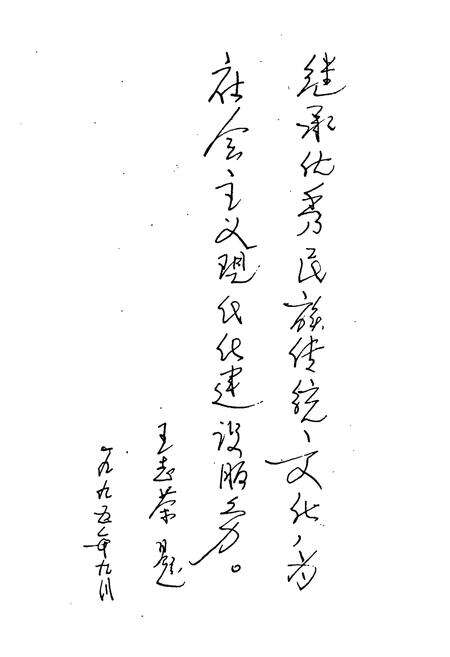 继承优秀民族传统、文化,为
社会主义现代化建设服务。
王志荣 题
一九九五年九月